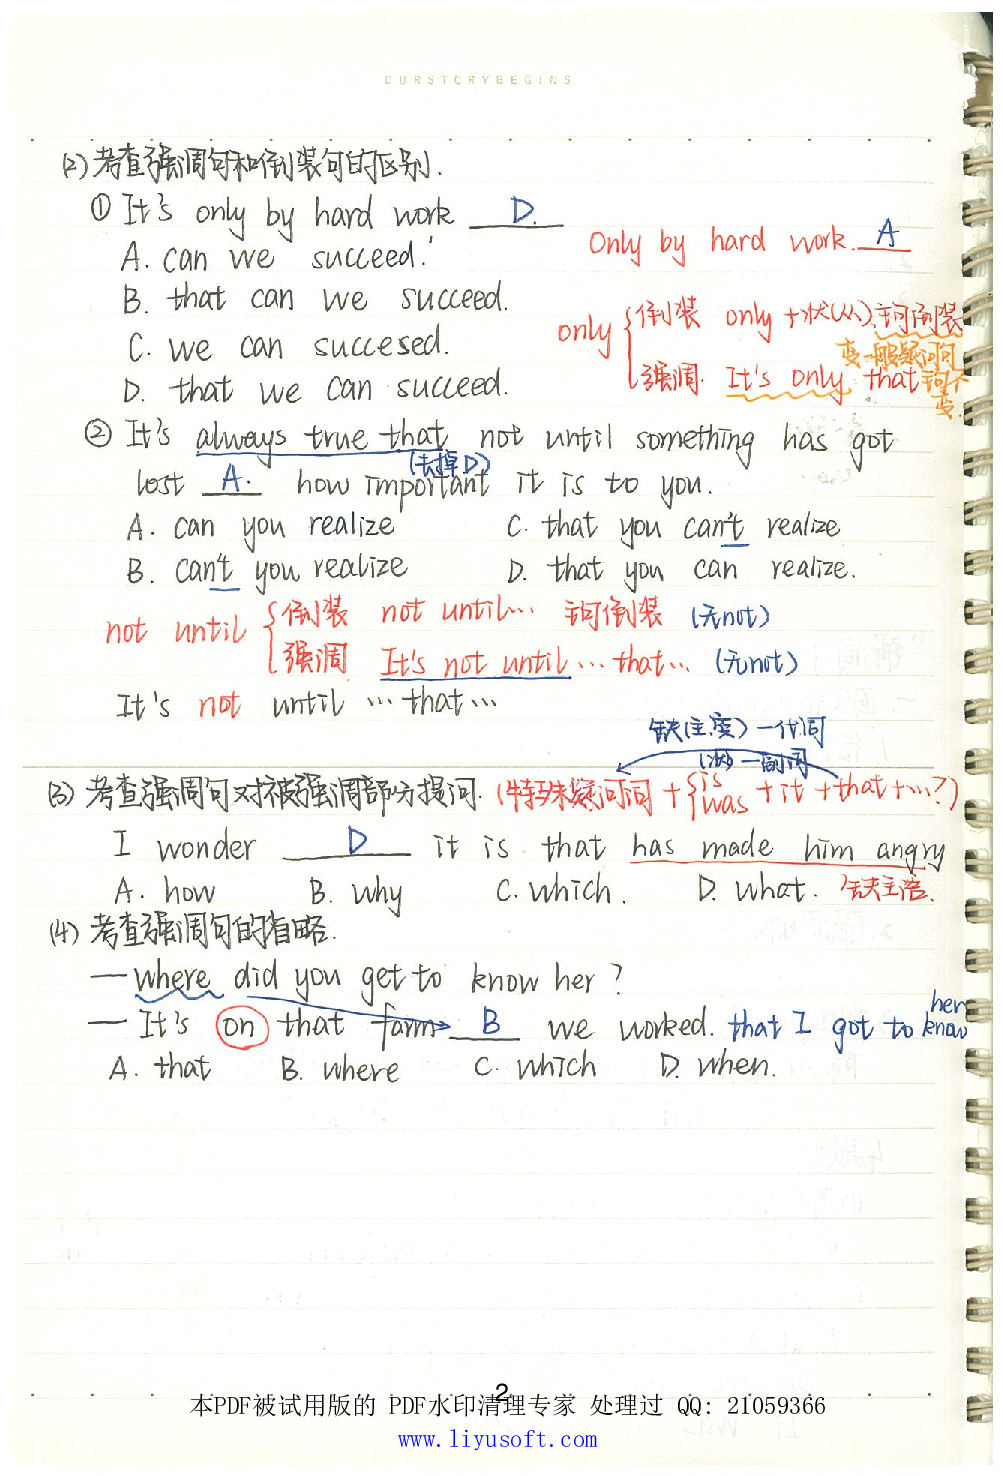 OURSTORYBEGINS
(2) 考查强调句和倒装句的区别.
① It's only by hard work D.
A. can we succeed.
B. that can we succeed.
C. we can succesed.
D. that we can succeed.
Only by hard work. A
only { 倒装 only + 状(从) 主句倒装
变一般疑问句
强调. It's only that 主句不变.
② It's always true that not until something has got
(去掉D)
lost A. how important it is to you.
A. can you realize C. that you can't realize
B. can't you realize D. that you can realize.
not until { 倒装 not until… 主句倒装 (无not)
强调 It's not until … that… (无not)
It's not until … that …
缺(主.宾) 一代词
(状) 一副词
(3) 考查强调句对被强调部分提问. (特殊疑问词 + { is was + it + that + …?)
I wonder D it is that has made him angry
A. how B. why C. which. D. what. 缺主语.
(4) 考查强调句的省略.
— where did you get to know her?
— It's on that farm B we worked. that I got to know her
A. that B. where C. which D. when.
2
本PDF被试用版的 PDF水印清理专家 处理过 QQ: 21059366
www.liyusoft.com